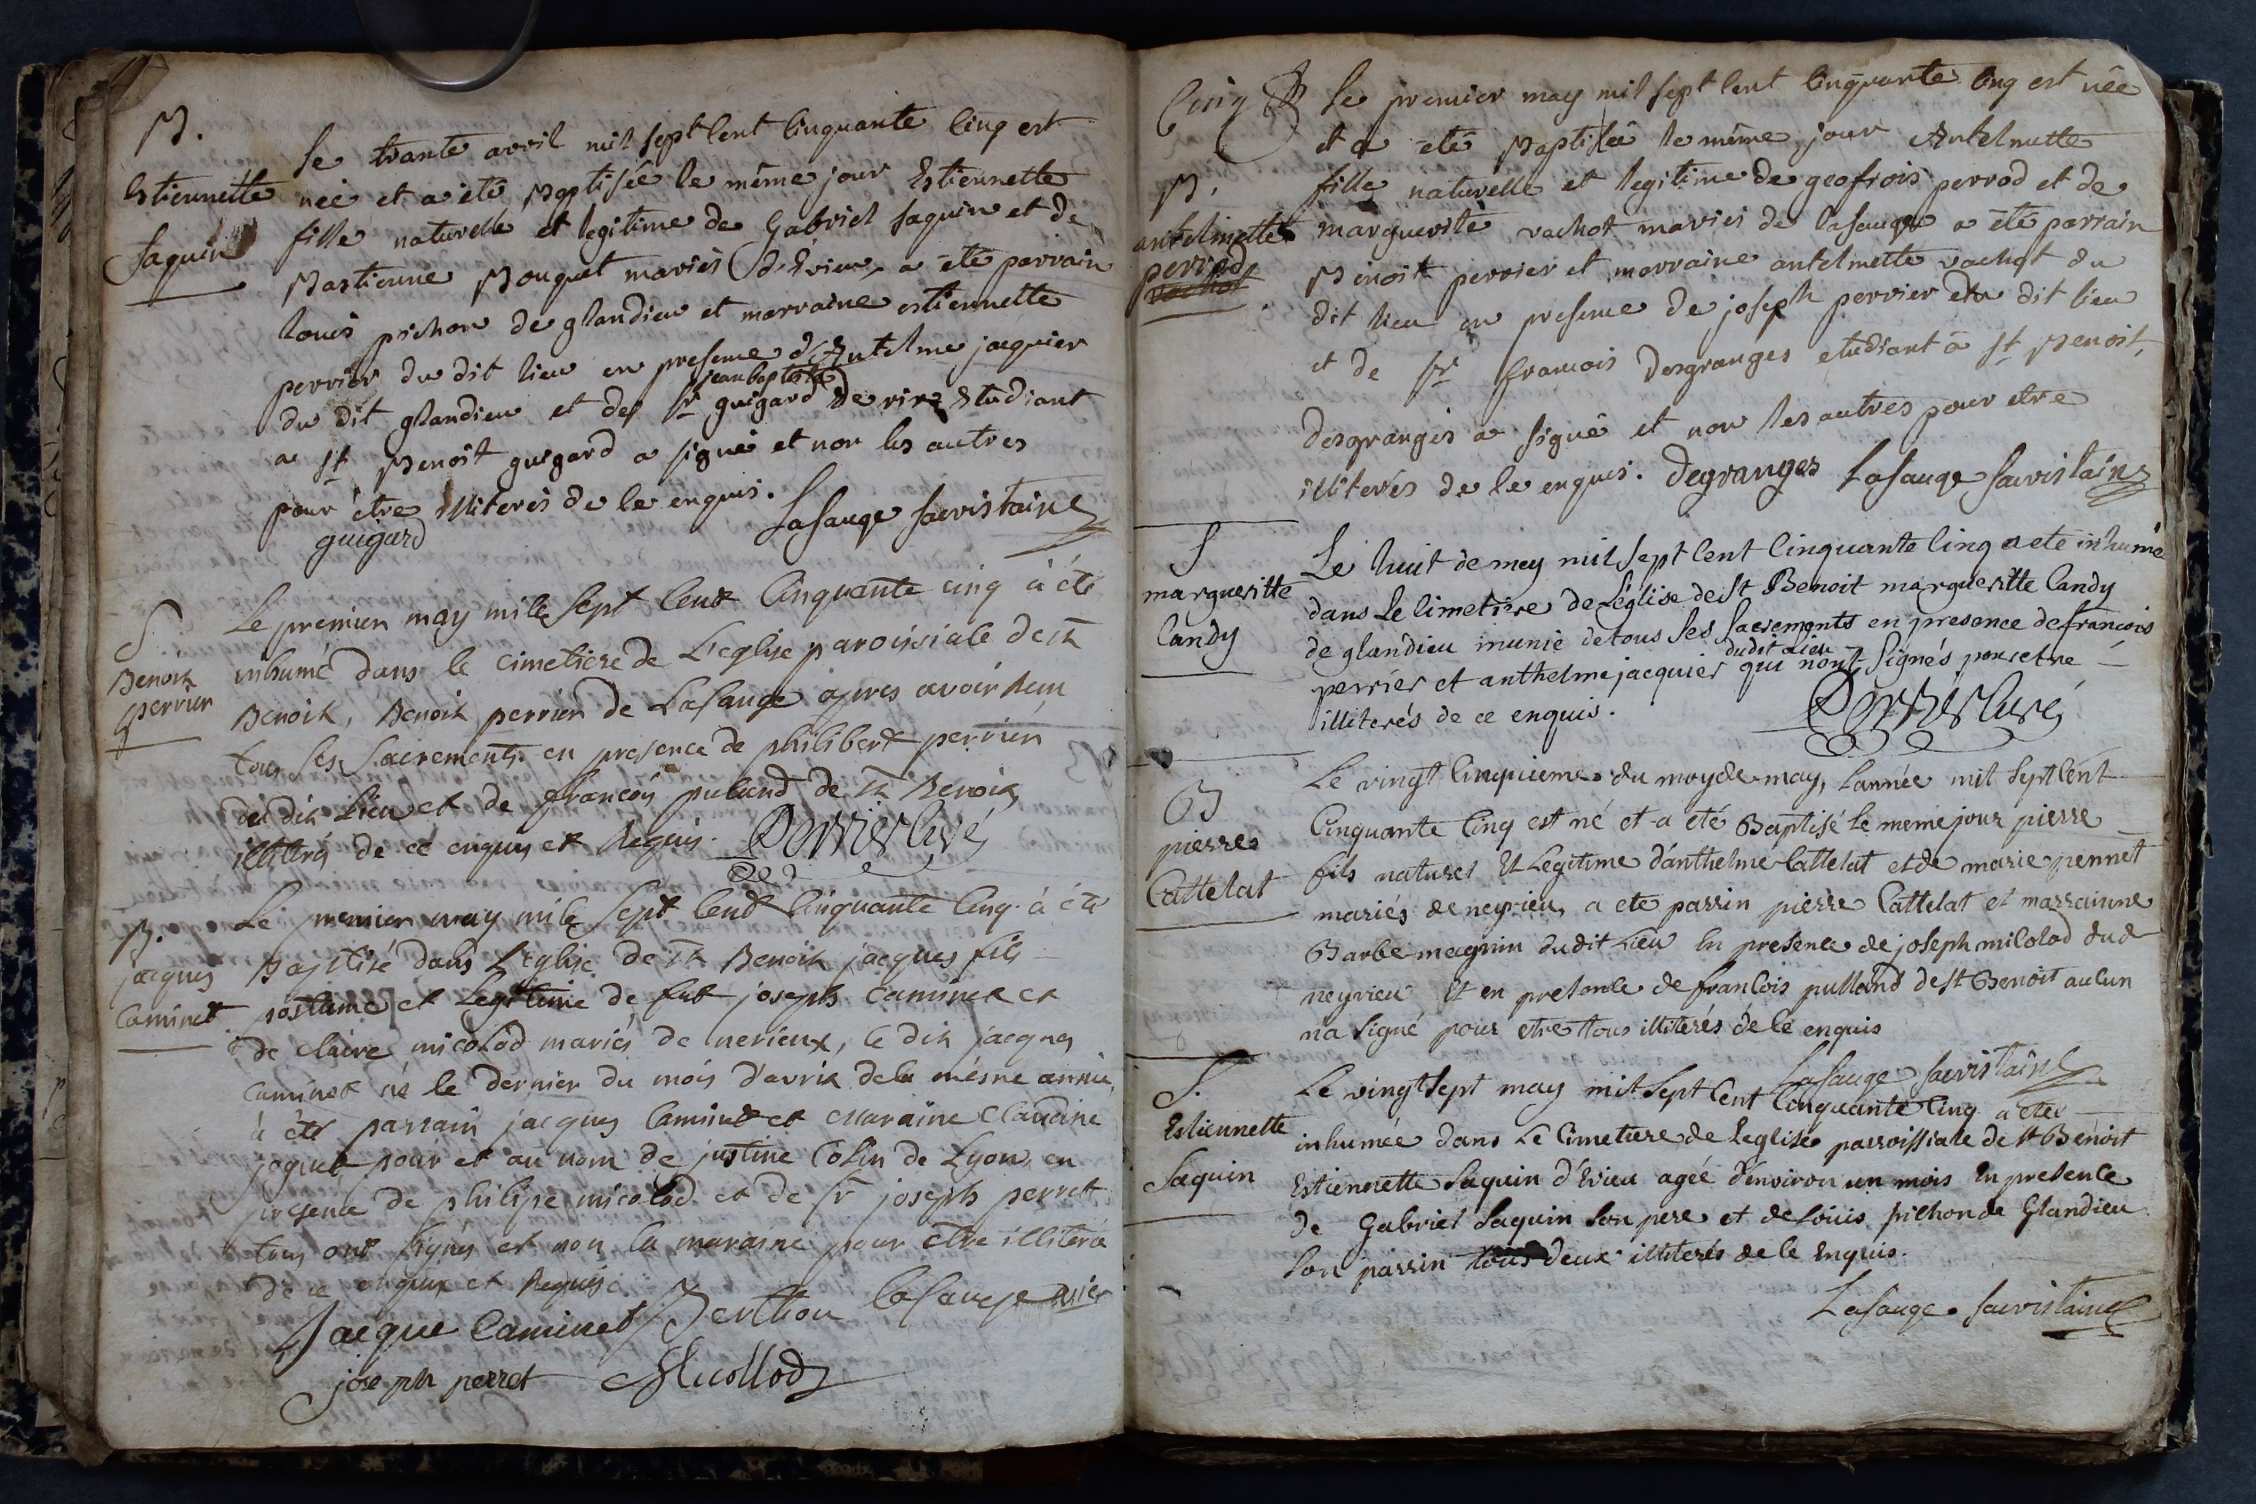 B.
Estiennette
Saquin
Le trante avril mil sept Cent Cinquante Cinq est
née et a été Baptisée le même jour Estiennette
fille naturelle et legitime de Gabriel Saquin et de
Bastienne Bouquet mariés d'Evieu, a été parrain
Louis pichon de glandieu et marraine estiennette
perrier du dit lieu en presence d'Antelme jacquier
jean baptiste
du dit glandieu et des Sr guigard de virz Etudiant
a St Benoit guigard a signé et non les autres
pour être illiterés de ce enquis. Lasauge sacristain
guigard
S
Benoit
perrier
Le premier may mile Sept Cent Cinquante cinq à été
inhumé dans le cimetiere de L'eglise paroissiale de St
Benoit, Benoit perrier de Lasauge apres avoir Reçu
tous ses Sacrements en presence de philibert perrier
du dit Lieu et de françois puland de St Benoit
illitérés de ce enquis et Requis. Perrier Curé
B.
jacques
Caminet
Le premier may mile Sept Cent Cinquante Cinq à été
Baptisé dans L'eglise de St Benoit jacques fils
postume et Legitime de feut joseph Caminet et
de Claire micolod mariés de nerieux, le dit jacques
Caminet né le dernier du mois d'avril de la mesme année,
à été parrain jacques Caminet et Maraine Claudine
joquet pour et au nom de justine Colin de Lyon, en
presence de philipe micolod et de Sr joseph perret
tous ont signés et non la maraine pour être illitérée
de ce enquise et Requise
Jacque Caminet Berthou Lasauge
joseph perret Micollod
Cinq
B.
antelmette
perrod
vachot
Le premier may mil sept Cent Cinquante Cinq est née
et a été Baptisée le même jour Antelmette
fille naturelle et legitime de geofrois perrod et de
marguerite vachot mariés de lasauge a été parrain
Benoit perrier et marraine antelmette vachot du
dit lieu en presence de joseph perrier du dit lieu
et de Sr francois Desgranges etudiant à St Benoit,
Desgranges a signé et non les autres pour etre
illiterés de ce enquis. Degranges Lasauge Sacristain
S
margueritte
Candy
Le huit de may mil sept Cent Cinquante Cinq a eté inhumé
dans Le Cimetiere de L'église de St Benoit margueritte Candy
de glandieu munie de tous Ses Sacrements en presence de francois
du dit Lieu
perrier et anthelme jacquier qui n'ont Signés pour etre
illiterés de ce enquis.
Perrier Curé
B
pierre
Cattelat
Le vingt Cinquieme du moy de may, L'année mil Sept Cent
Cinquante Cinq est né et a été Baptisé le meme jour pierre
fils naturel Et Legitime d'anthelme Cattelat et de marie pennet
mariés de neyrieu, a ete parrin pierre Cattelat et marrainne
Barbe magnin du dit Lieu En presence de joseph micolod dud
neyrieu Et en presence de francois pulland de St Benoit aucun
na signé pour etre tous illiterés de Ce enquis
Lasauge sacristain
S.
Estiennette
Saquin
Le vingt sept may mil Sept Cent Cinquante Cinq a eté
inhumée dans Le Cimetiere de l'eglise parroissiale de St Benoit
Estiennette Saquin d'Evieu agée d'environ un mois En presence
de Gabriel Saquin Son pere et de Louis pichon de Glandieu
Son parrin tous deux illiterés de Ce Enquis.
Lasauge Sacristain